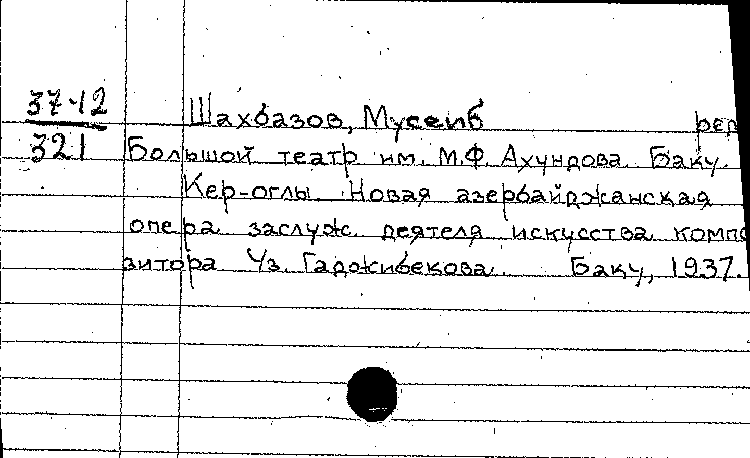 37-12
321
Шахбазов, Мусеиб ред
Большой театр им. М.Ф. Ахундова. Баку.
Кер-оглы. Новая азербайджанская
опера заслуж. деятеля искусства компо
зитора Уз. Гаджибекова. Баку, 1937.